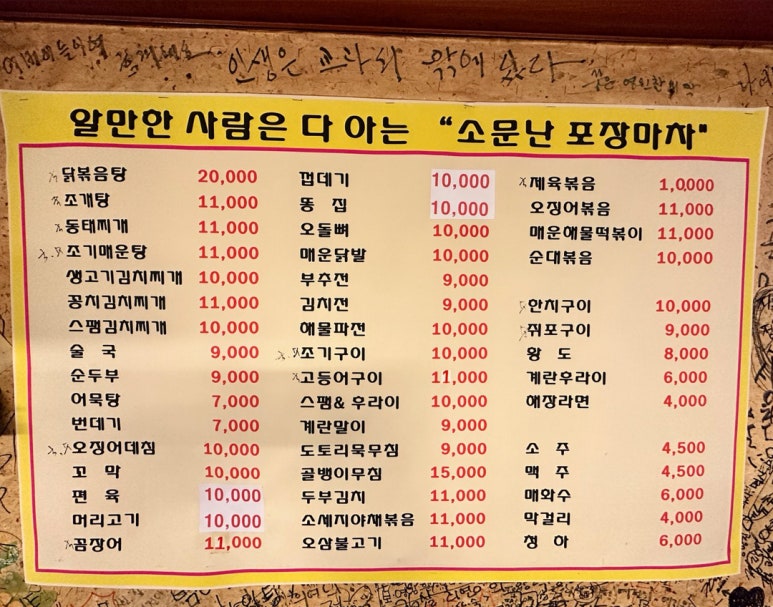 인생은 교과서 밖에 있다
알만한 사람은 다 아는 "소문난 포장마차"
닭볶음탕 20,000
조개탕 11,000
동태찌개 11,000
조기매운탕 11,000
생고기김치찌개 10,000
꽁치김치찌개 11,000
스팸김치찌개 10,000
술 국 9,000
순두부 9,000
어묵탕 7,000
번데기 7,000
오징어데침 10,000
꼬 막 10,000
편 육 10,000
머리고기 10,000
꼼장어 11,000
껍데기 10,000
똥 집 10,000
오돌뼈 10,000
매운닭발 10,000
부추전 9,000
김치전 9,000
해물파전 10,000
조기구이 10,000
고등어구이 11,000
스팸& 후라이 10,000
계란말이 9,000
도토리묵무침 9,000
골뱅이무침 15,000
두부김치 11,000
소세지야채볶음 11,000
오삼불고기 11,000
제육볶음 1,0000
오징어볶음 11,000
매운해물떡볶이 11,000
순대볶음 10,000
한치구이 10,000
쥐포구이 9,000
왕 도 8,000
계란후라이 6,000
해장라면 4,000
소 주 4,500
맥 주 4,500
매화수 6,000
막걸리 4,000
청 하 6,000